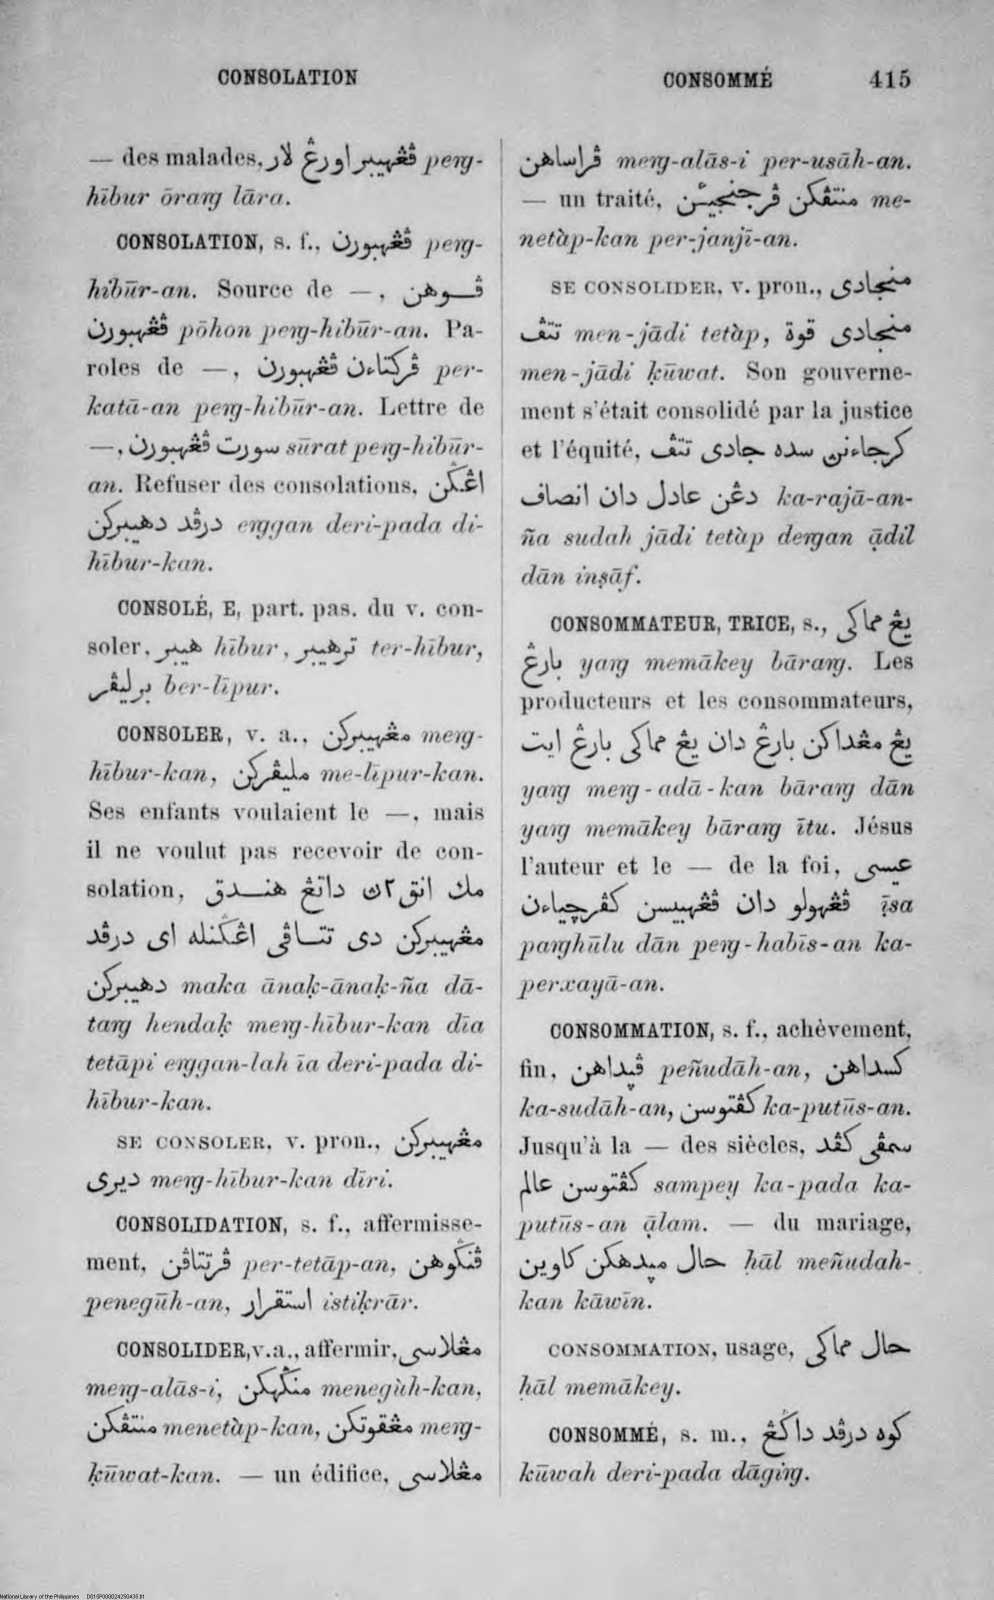 CONSOLATION
CONSOMMÉ 415
— des malades, ڤڠهيبر اورڠ لار perg-
hībur ōrarg lāra.
CONSOLATION, s. f., ڤڠهيبورن perg-
hībūr-an. Source de —, ڤوهن
ڤڠهيبورن pōhon perg-hibūr-an. Pa-
roles de —, ڤركتاءن ڤڠهيبورن per-
katā-an perg-hibūr-an. Lettre de
—, سورت ڤڠهيبورن sūrat perg-hibūr-
an. Refuser des consolations, اڠݢن
درڤد دهيبركن erggan deri-pada di-
hībur-kan.
CONSOLÉ, E, part. pas. du v. con-
soler, هيبر hībur, ترهيبر ter-hībur,
برليڤر ber-līpur.
CONSOLER, v. a., مڠهيبركن merg-
hībur-kan, مليڤركن me-līpur-kan.
Ses enfants voulaient le —, mais
il ne voulut pas recevoir de con-
solation, مك انق٢ن داتڠ هندق
مڠهيبركن دي تتاڤي اڠݢنله اي درڤد
دهيبركن maka ānaḳ-ānaḳ-ña dā-
targ hendaḳ merg-hībur-kan dīa
tetāpi erggan-lah īa deri-pada di-
hībur-kan.
SE CONSOLER, v. pron., مڠهيبركن
ديري merg-hībur-kan dīri.
CONSOLIDATION, s. f., affermisse-
ment, ڤرتتاڤن per-tetāp-an, ڤنݢوهن
penegūh-an, استقرار istiḳrār.
CONSOLIDER, v.a., affermir, مڠلاسي
merg-alās-i, منݢهكن menegùh-kan,
منتڤكن menetàp-kan, مڠقوتكن merg-
ḳūwat-kan. — un édifice, مڠلاسي
ڤراساهن merg-alās-i per-usāh-an.
— un traité, منتڤكن ڤرجنجيئن me-
netàp-kan per-janjī-an.
SE CONSOLIDER, v. pron., منجادي
تتڤ men-jādi tetàp, منجادي قوة
men-jādi ḳūwat. Son gouverne-
ment s'était consolidé par la justice
et l'équité, كرجاءنڽ سده جادي تتڤ
دڠن عادل دان انصاف ka-rajā-an-
ña sudah jādi tetàp dergan ạ̄dil
dān inṣāf.
CONSOMMATEUR, TRICE, s., يڠ مماكي
بارڠ yarg memākey bārarg. Les
producteurs et les consommateurs,
يڠ مڠداكن بارڠ دان يڠ مماكي بارڠ ايت
yarg merg-adā-kan bārarg dān
yarg memākey bārarg ītu. Jésus
l'auteur et le — de la foi, عيسى
ڤڠهولو دان ڤڠهبيسن كڤرچياءن ị̄sa
parghūlu dān perg-habīs-an ka-
perxayā-an.
CONSOMMATION, s. f., achèvement,
fin, ڤڽداهن peñudāh-an, كسداهن
ka-sudāh-an, كڤتوسن ka-putūs-an.
Jusqu'à la — des siècles, سمڤي كڤد
كڤتوسن عالم sampey ka-pada ka-
putūs-an ạ̄lam. — du mariage,
حال مڽدهكن كاوين ḥāl meñudah-
kan kāwīn.
CONSOMMATION, usage, حال مماكي
ḥāl memākey.
CONSOMMÉ, s. m., كوه درڤد داݢڠ
kūwah deri-pada dāgirg.
National Library of the Philippines